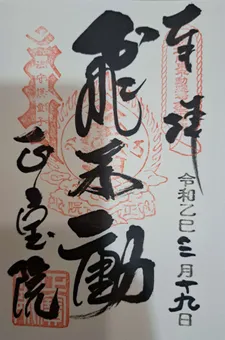 奉拝
令和乙巳三月十九日
飛不動
正宝院